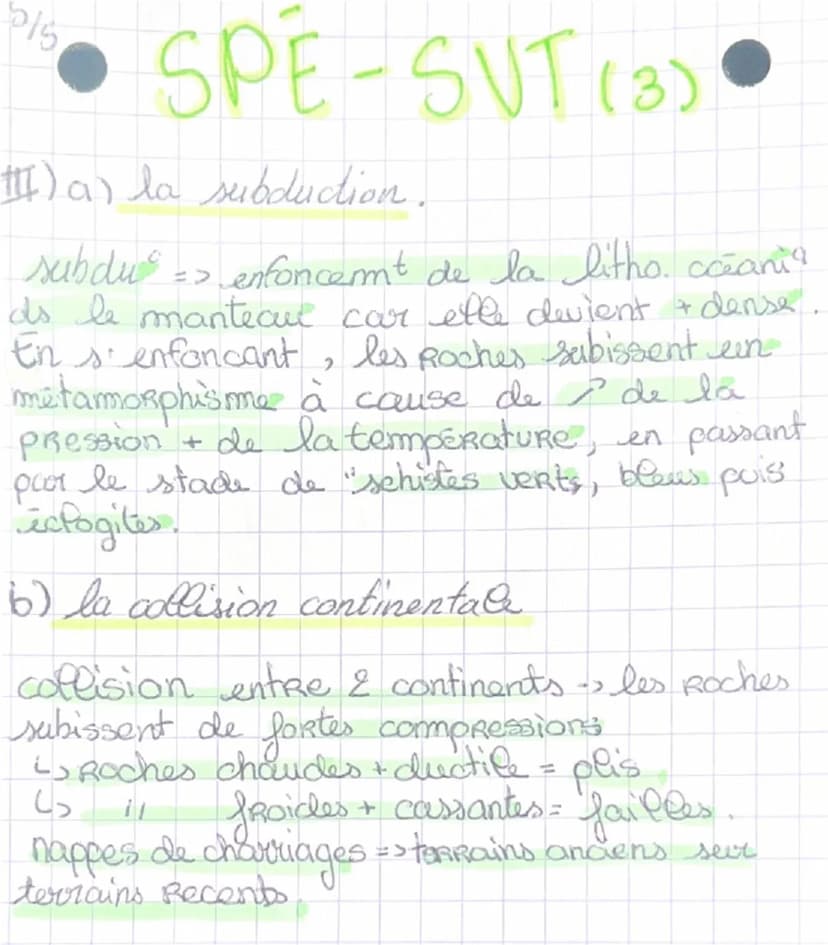 5/5
SPÉ - SVT (3)
III) a) la subduction.
subduᶜ => enfoncemᵗ de la litho. océaniq
ds le manteau car elle devient + dense.
En s'enfoncant, les Roches subissent un
métamorphisme à cause de ↗ de la
pression + de la température, en passant
par le stade de "schistes verts, bleus puis
éclogites.
b) la collision continentale
collision entre 2 continents -> les Roches
subissent de fortes compressions
↳ Roches chaudes + ductile = plis
↳ " froides + cassantes = failles.
nappes de charriages => terrains anciens sur
terrains Recents.